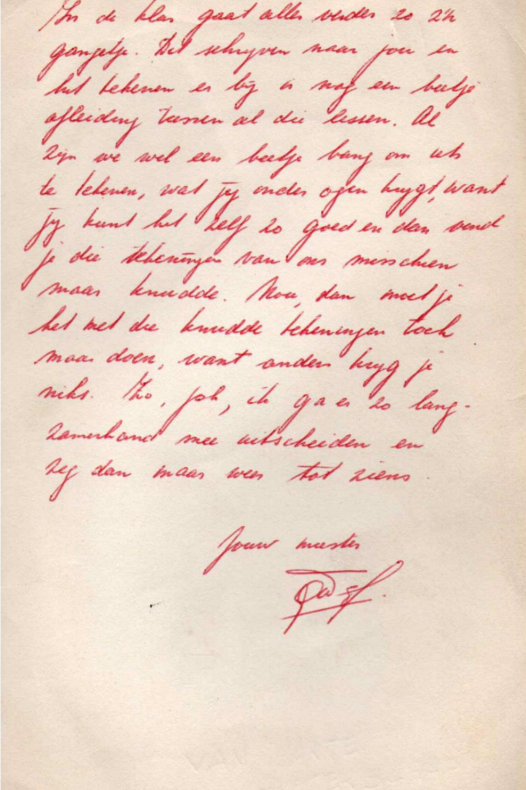 In de klas gaat alles verder zo z'n
gangetje. Dit schrijven naar jou en
het tekenen er bij is nog een beetje
afleiding tussen al die lessen. Al
zijn we wel een beetje bang om iets
te tekenen, wat jij onder ogen krijgt, want
jij kunt het zelf zo goed en dan vind
je die tekeningen van ons misschien
maar knudde. Nou, dan moet je
het met die knudde tekeningen toch
maar doen, want anders krijg je
niks. Zo, joh, ik ga er zo lang-
zamerhand mee uitscheiden en
zeg dan maar weer tot ziens.
Jouw meester